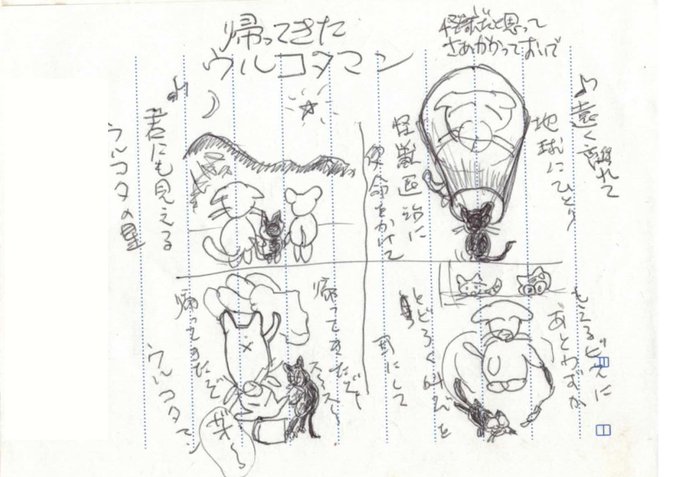 帰ってきた
ウルコタマン
怪獣だと思って
さあかかっておいで
♪遠く離れて
地球にひとり
怪獣退治に
使命をかけて
♪君にも見える
ウルコタの星
もえる
あとわずか
とどろく叫びを
耳にして
帰ってきたぞ〜
帰ってきたぞ
ウルコタマン